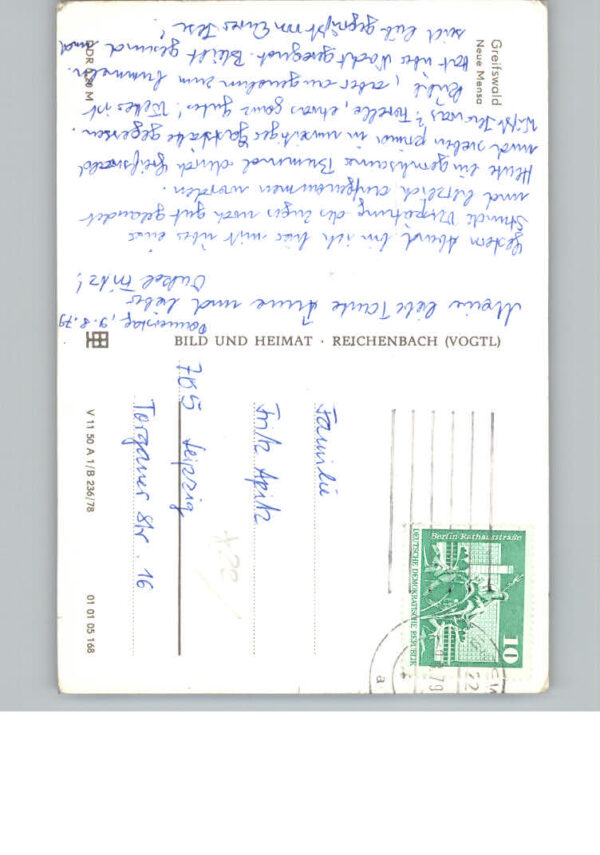 Greifswald
Neue Mensa
Donnerstag, 9.8.79
Meine liebe Tante Anne und lieber
Onkel Fritz!
Gestern Abend bin ich hier mit über einer
Stunde Verspätung des Zuges noch gut gelandet
und herzlich aufgenommen worden.
Heute ein gemeinsame Bummel durch Greifswald
und in gegessen.
Wißt Ihr was? Forelle, etwas ganz gutes! Wetter ist
kühl, aber angenehm zum bummeln.
Hat über Nacht geregnet. Bleibt gesund und
seid lieb gegrüßt von Eurer
DDR 0,20 M
BILD UND HEIMAT · REICHENBACH (VOGTL)
V 11 50 A 1/B 236/78
01 01 05 168
Familie
Fritz Apitz
705 Leipzig
Torgauer Str. 16
Berlin-Rathausstraße
DEUTSCHE DEMOKRATISCHE REPUBLIK
10